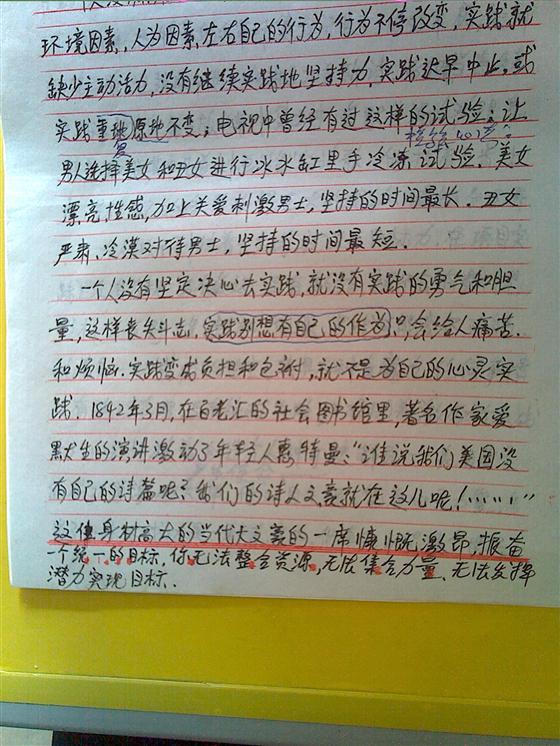 环境因素,人为因素左右自己的行为,行为不停改变,实践就
缺少主动活力,没有继续实践地坚持力,实践迟早中止,或
实践重地原地不变;电视中曾经有过这样的试验:让
复
男人选择美女和丑女进行冰水缸里手冷冻试验.美女
漂亮性感,加上关爱刺激男士,坚持的时间最长.丑女
严肃、冷漠对待男士,坚持的时间最短.
一个人没有坚定决心去实践,就没有实践的勇气和胆
量,这样丧失斗志,实践别想有自己的作为,只会给人痛苦
和烦恼.实践变成负担和包袱,就不是为自己的心灵实
践.1842年3月,在百老汇的社会图书馆里,著名作家爱
默生的演讲激动了年轻人惠特曼:“谁说我们美国没
有自己的诗篇呢?我们的诗人文豪就在这儿呢!……”
这位身材高大的当代大文豪的一席慷慨激昂,振奋
一个统一的目标,你无法整合资源,无法集合力量、无法发挥
潜力实现目标.